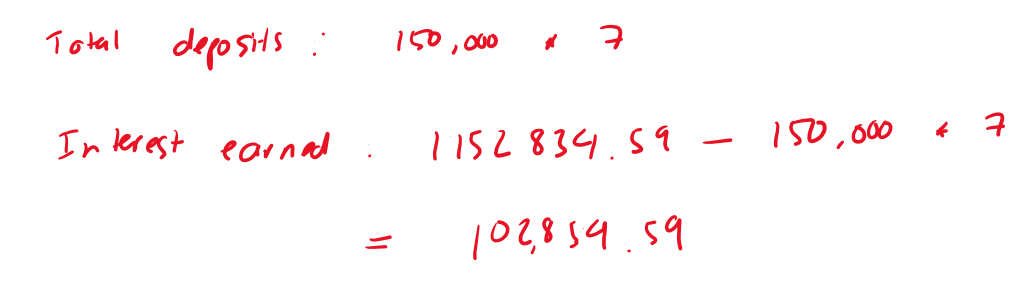 Total deposits : 150,000 * 7
Interest earned : 1152834.59 - 150,000 * 7
= 102,854.59